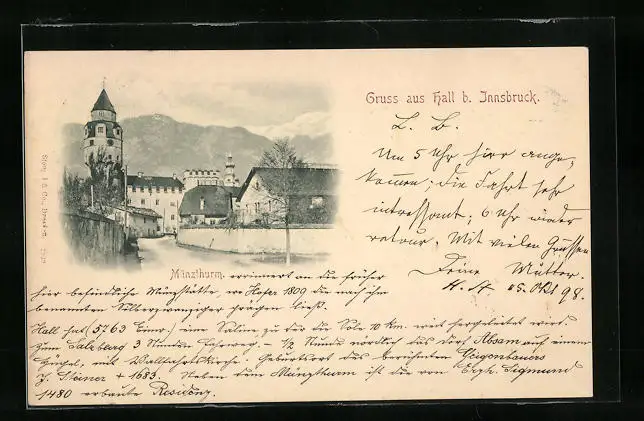 Gruss aus Hall b. Innsbruck.
L. B.
Um 5 Uhr hier ange-
kommen; die Fahrt sehr
interessant; 6 Uhr wieder
retour. Mit vielen Grüssen
Deine Mutter.
H. 25. Okt 98.
Münzthurm. erinnert an die früher
hier befindliche Münzstätte, wo Hofer 1809 die nach ihm
benannten Silberzwanziger prägen ließ.
Hall hat (5763 Einw.) eine Saline zu der die Sole 10 km. weit hergeleitet wird.
Zum Salzberg 3 Stunden Fahrweg. - 1/2 Stunde nördlich das Dorf Absam auf einem
Hügel, mit Wallfahrtskirche. Geburtsort des berühmten Geigenbauers
J. Steiner + 1683. Neben dem Münzthurm ist die von Erzh. Sigmund
1480 erbaute Residenz.